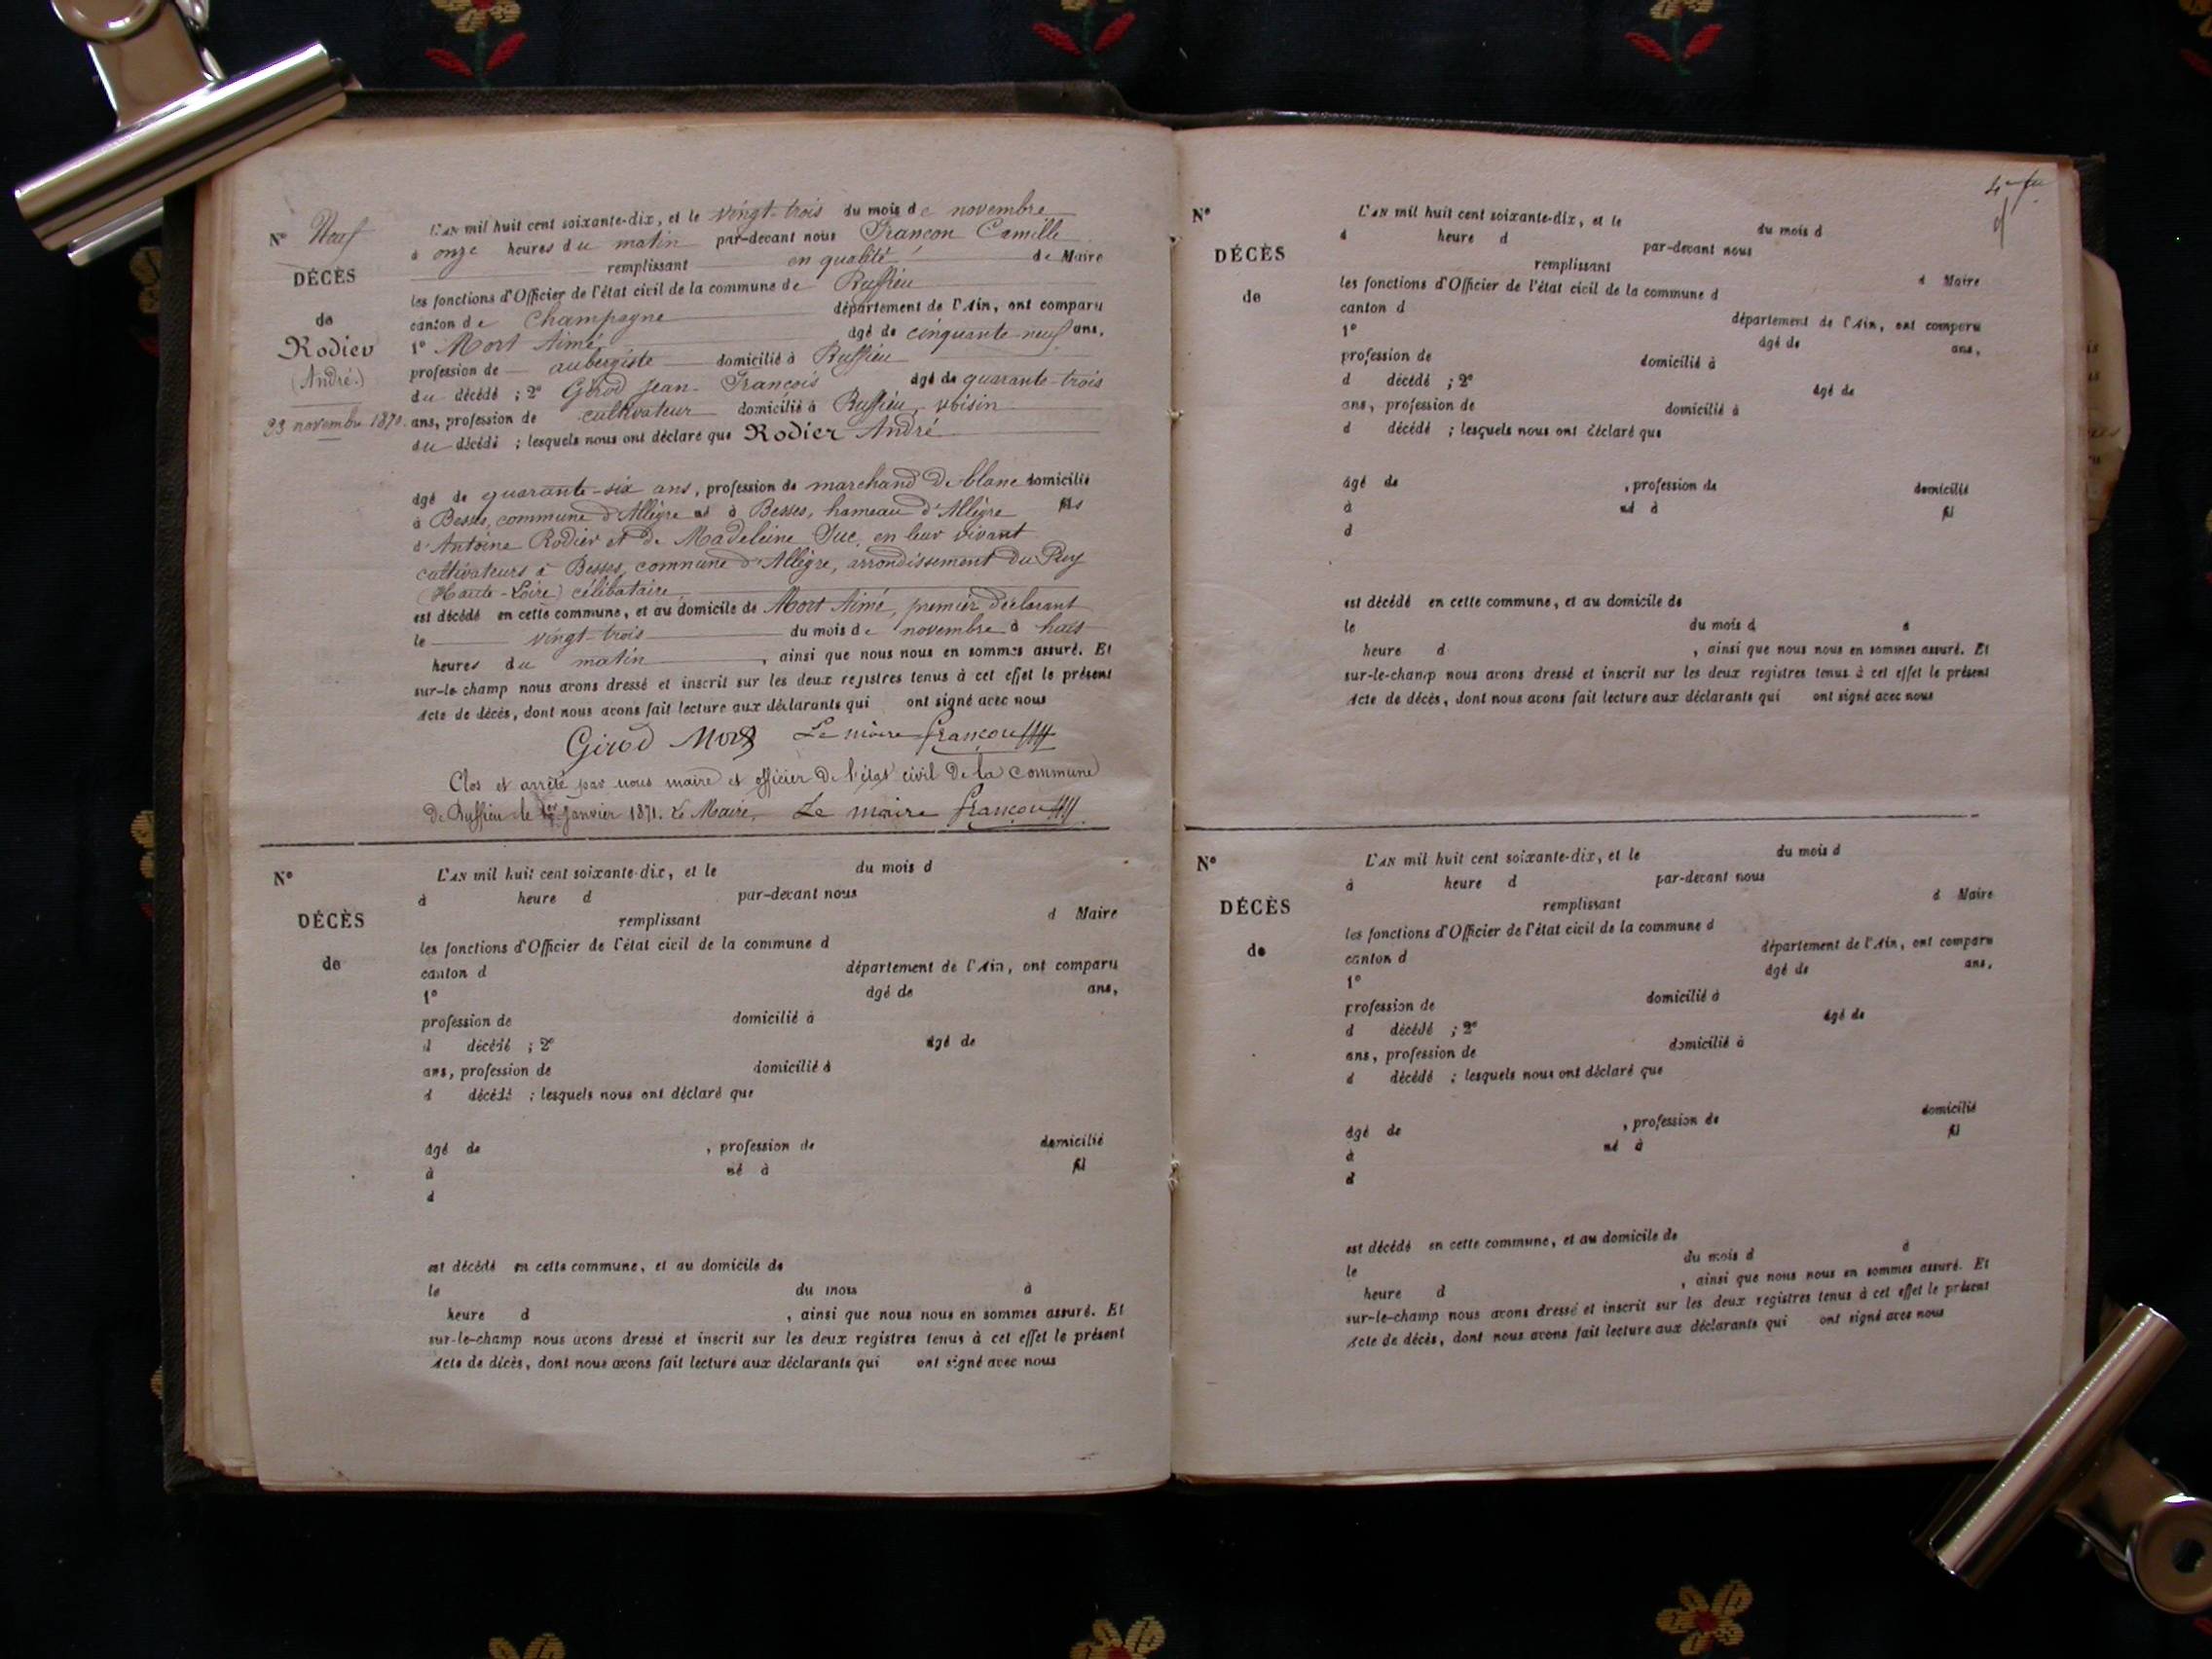 N° Neuf
DÉCÈS
de
Rodier
(André.)
23 novembre 1870.
L'AN mil huit cent soixante-dix, et le vingt-trois du mois de novembre
à onze heures du matin par-devant nous Françon Camille
remplissant en qualité de Maire
les fonctions d'Officier de l'état civil de la commune de Ruffieu
canton de Champagne département de l'Ain, ont comparu
1° Mort Aimé âgé de cinquante-neuf ans,
profession de aubergiste domicilié à Ruffieu
du décédé ; 2° Girod Jean-François âgé de quarante-trois
ans, profession de cultivateur domicilié à Ruffieu, voisin
du décédé ; lesquels nous ont déclaré que Rodier André
âgé de quarante-six ans, profession de marchand de blanc domicilié
à Besses, commune d'Allègre né à Besses, hameau d'Allègre fils
d'Antoine Rodier et de Madeleine Suc, en leur vivant
cultivateurs à Besses, commune d'Allègre, arrondissement du Puy
(Haute-Loire) célibataire
est décédé en cette commune, et au domicile de Mort Aimé, premier déclarant
le vingt-trois du mois de novembre à huit
heures du matin, ainsi que nous nous en sommes assuré. Et
sur-le-champ nous avons dressé et inscrit sur les deux registres tenus à cet effet le présent
Acte de décès, dont nous avons fait lecture aux déclarants qui ont signé avec nous
Girod Mort Le maire Françon
Clos et arrêté par nous maire et officier de l'état civil de la commune
de Ruffieu le 1er janvier 1871. Le Maire, Le maire Françon
N°
DÉCÈS
de
L'AN mil huit cent soixante-dix, et le du mois d
à heure d par-devant nous
remplissant d Maire
les fonctions d'Officier de l'état civil de la commune d
canton d département de l'Ain, ont comparu
1° âgé de ans,
profession de domicilié à
d décédé ; 2° âgé de
ans, profession de domicilié à
d décédé ; lesquels nous ont déclaré que
âgé de , profession de domicilié
à né à fil
d
est décédé en cette commune, et au domicile de
le du mois à
heure d , ainsi que nous nous en sommes assuré. Et
sur-le-champ nous avons dressé et inscrit sur les deux registres tenus à cet effet le présent
Acte de décès, dont nous avons fait lecture aux déclarants qui ont signé avec nous
N°
DÉCÈS
de
L'AN mil huit cent soixante-dix, et le du mois d
à heure d par-devant nous
remplissant d Maire
les fonctions d'Officier de l'état civil de la commune d
canton d département de l'Ain, ont comparu
1° âgé de ans,
profession de domicilié à
d décédé ; 2° âgé de
ans, profession de domicilié à
d décédé ; lesquels nous ont déclaré que
âgé de , profession de domicilié
à né à fil
d
est décédé en cette commune, et au domicile de
le du mois d à
heure d , ainsi que nous nous en sommes assuré. Et
sur-le-champ nous avons dressé et inscrit sur les deux registres tenus à cet effet le présent
Acte de décès, dont nous avons fait lecture aux déclarants qui ont signé avec nous
N°
DÉCÈS
de
L'AN mil huit cent soixante-dix, et le du mois d
à heure d par-devant nous
remplissant d Maire
les fonctions d'Officier de l'état civil de la commune d
canton d département de l'Ain, ont comparu
1° âgé de ans,
profession de domicilié à
d décédé ; 2° âgé de
ans, profession de domicilié à
d décédé ; lesquels nous ont déclaré que
âgé de , profession de domicilié
à né à fil
d
est décédé en cette commune, et au domicile de
le du mois d à
heure d , ainsi que nous nous en sommes assuré. Et
sur-le-champ nous avons dressé et inscrit sur les deux registres tenus à cet effet le présent
Acte de décès, dont nous avons fait lecture aux déclarants qui ont signé avec nous